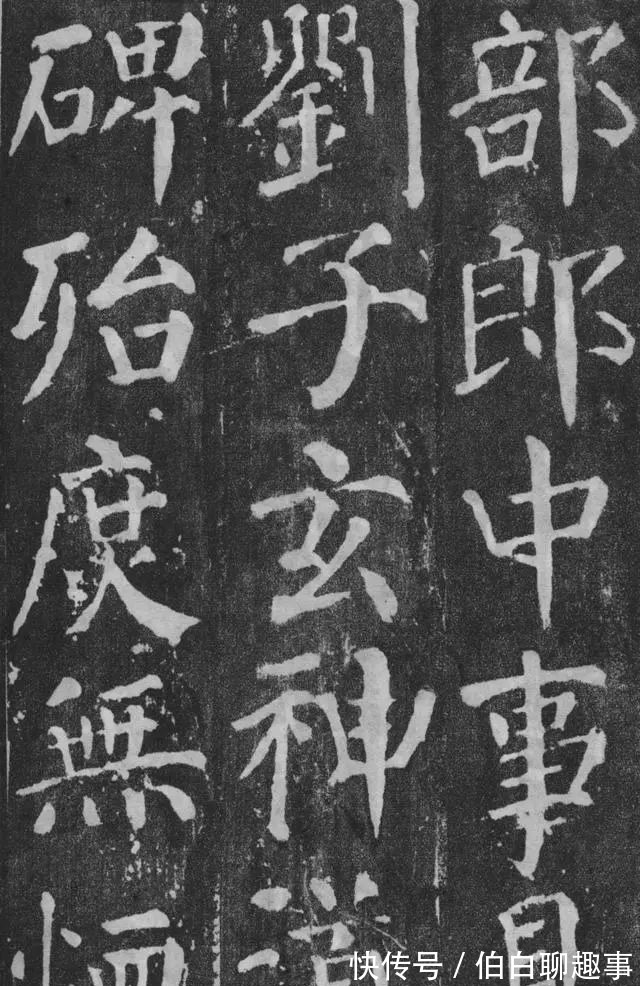 部郎中事具
劉子玄神道
碑殆庶無愧
快传号/伯白聊趣事